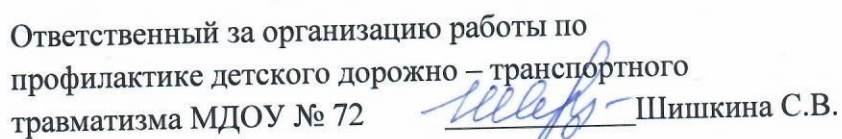 Ответственный за организацию работы по
профилактике детского дорожно – транспортного
травматизма МДОУ № 72 Шишкина С.В.